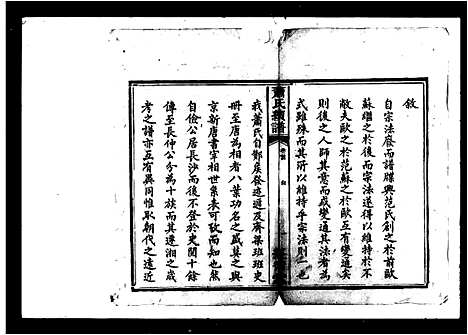 敘
自宗法廢而譜牒興范氏創之於前歐
蘇繼之於後而宗法遂得以維持於不
敝夫歐之於范蘇之於歐互有變通矣
則後之人師其意而或變通其法
式雖殊而其所以維持乎宗法則一也
蕭氏續譜
卷首
敘
我蕭氏自鄼侯發迹遞及齊梁班班史
冊至唐為相者八葉功名之盛莫與
京新唐書宰相世系表可攷而知也然
自儉公居長沙而後不登於史閱十餘
傳至長仲公分為十族而其遷湘之歲
考之譜亦互有異同惟取朝代之遠近